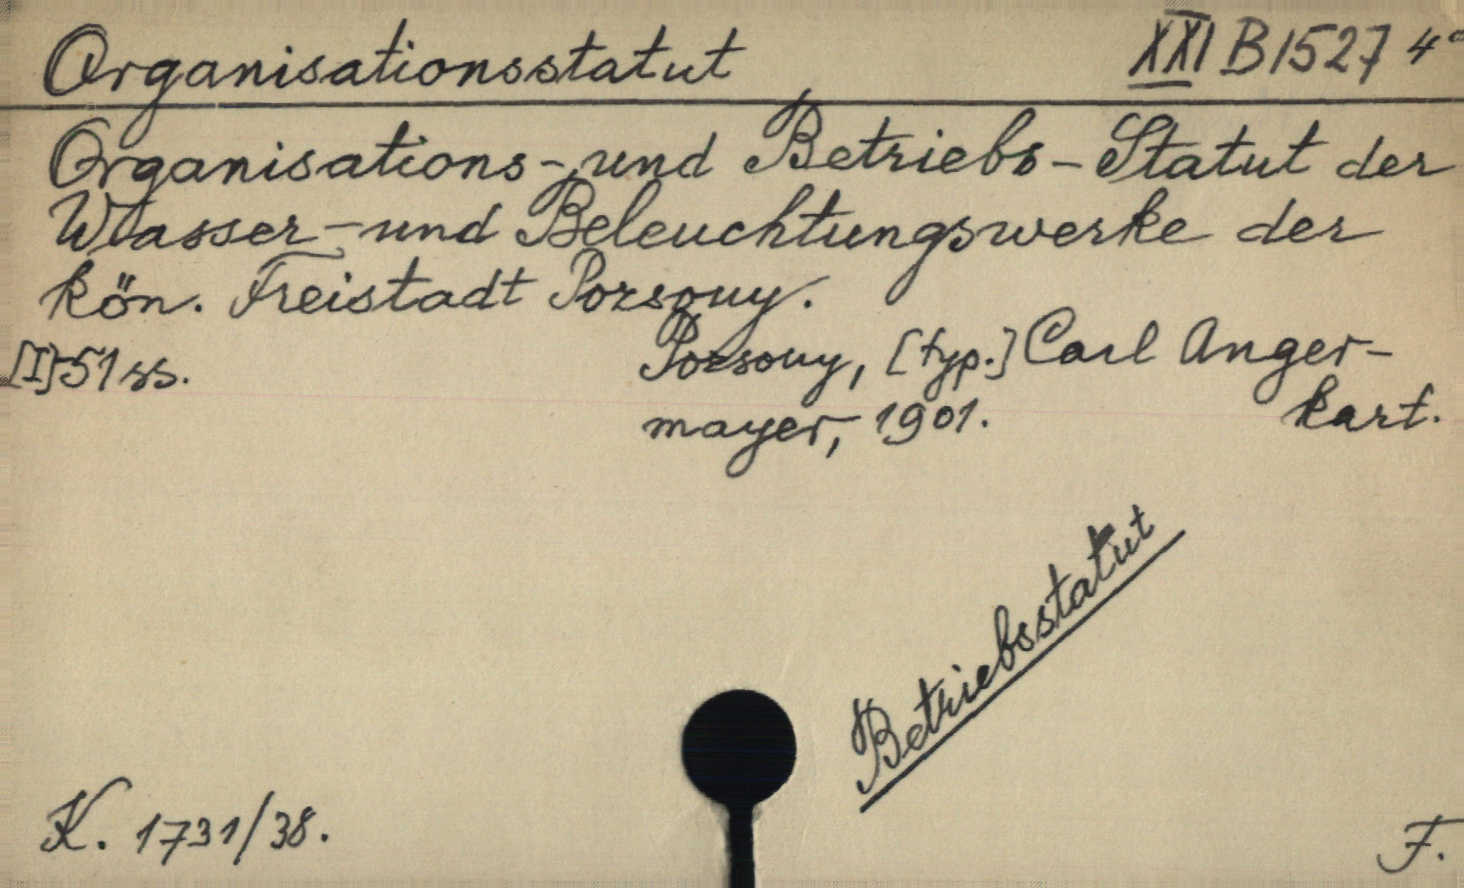 Organisationsstatut XXI B 1527 4°
Organisations- und Betriebs-Statut der
Wasser- und Beleuchtungswerke der
kön. Freistadt Pozsony.
[I]-51 ss. Pozsony, [typ.] Carl Anger-
mayer, 1901. kart.
Betriebsstatut
K. 1731/38. F.